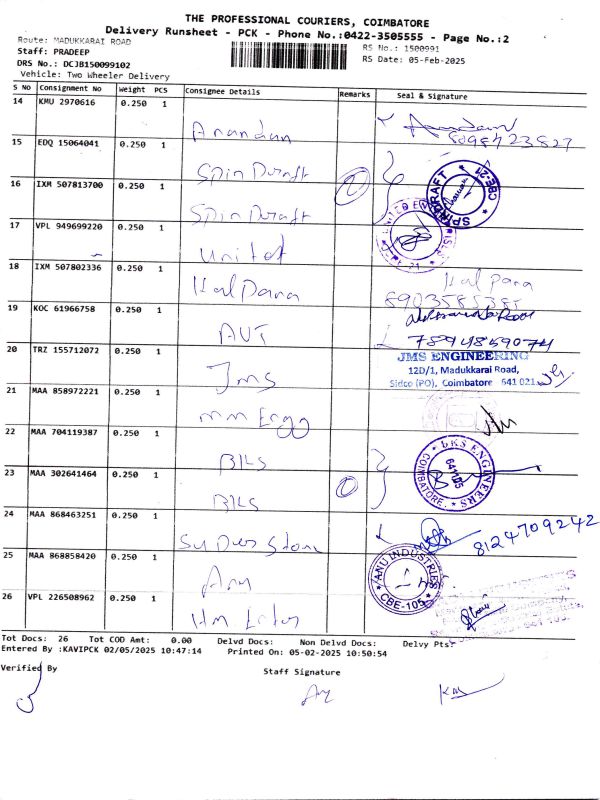 THE PROFESSIONAL COURIERS, COIMBATORE
Delivery Runsheet - PCK - Phone No.:0422-3505555 - Page No.:2
Route: MADUKKARAI ROAD
RS No.: 1500991
Staff: PRADEEP
RS Date: 05-Feb-2025
DRS No.: DCJB150099102
Vehicle: Two Wheeler Delivery
S No Consignment No Weight PCS Consignee Details Remarks Seal & Signature
14 KMU 2970616 0.250 1
Anandan
15 EDQ 15064041 0.250 1
Spin Duraft
16 IXM 507813700 0.250 1
Spin Duraft
SPINDRAFT CBE-21
17 VPL 949699220 0.250 1
United
18 IXM 507802336 0.250 1
Kalpana
Kalpana
8903585385
19 KOC 61966758 0.250 1
AVT
7894859074
20 TRZ 155712072 0.250 1
Jms
JMS ENGINEERING
12D/1, Madukkarai Road,
Sidco (PO), Coimbatore 641 021
21 MAA 858972221 0.250 1
mm Ergo
22 MAA 704119387 0.250 1
BKS
BKS ENGINEERS
COIMBATORE.
641105
23 MAA 302641464 0.250 1
BKS
24 MAA 868463251 0.250 1
8124709242
25 MAA 868858420 0.250 1
Anu
ANU INDUSTRIES
CBE-105
26 VPL 226508962 0.250 1
Tot Docs: 26 Tot COD Amt: 0.00 Delvd Docs: Non Delvd Docs: Delvy Pts:
Entered By :KAVIPCK 02/05/2025 10:47:14 Printed On: 05-02-2025 10:50:54
Verified By
Staff Signature